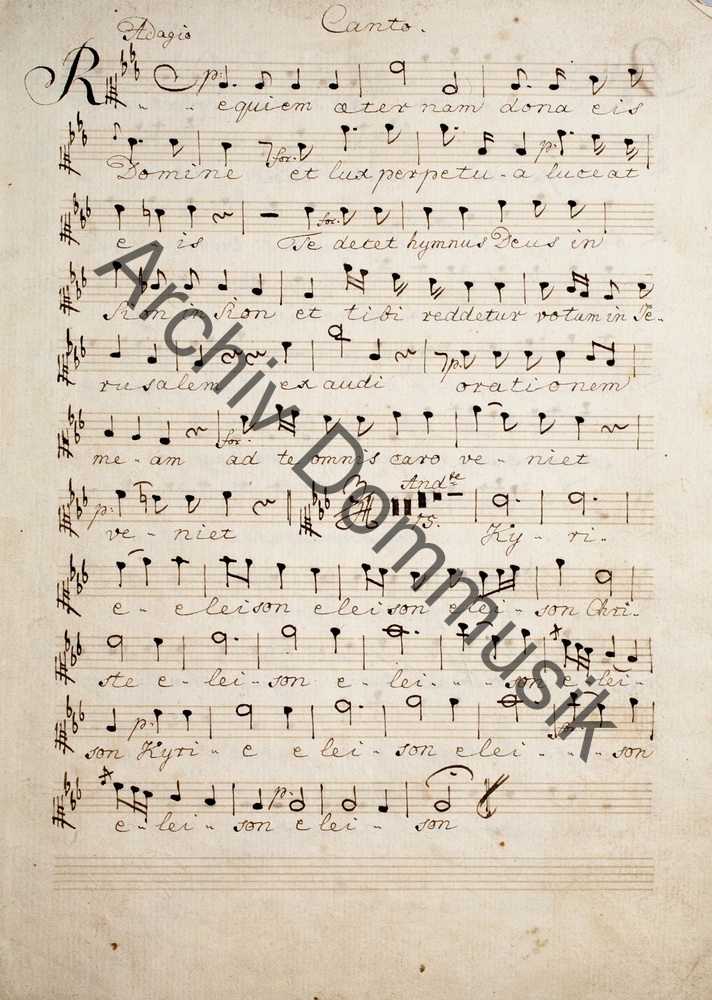 Canto.
Adagio
p:
R - - equiem aeter nam dona eis
Domine for: et lux perpetu - a p: luceat
e - is Te for: decet hymnus Deus in
Sion in Sion et tibi reddetur votum in Je-
rusalem exaudi p: orationem
me - am for: ad te omnis caro ve - niet
p: ve - niet Andte 15. Ky - ri -
e - e leison elei son elei - son Chri -
ste e - lei - son e - lei - - - son e - lei -
son p: Kyri - e e lei - son elei - - - son
e - lei - son p: e lei - son
Archiv Dommusik